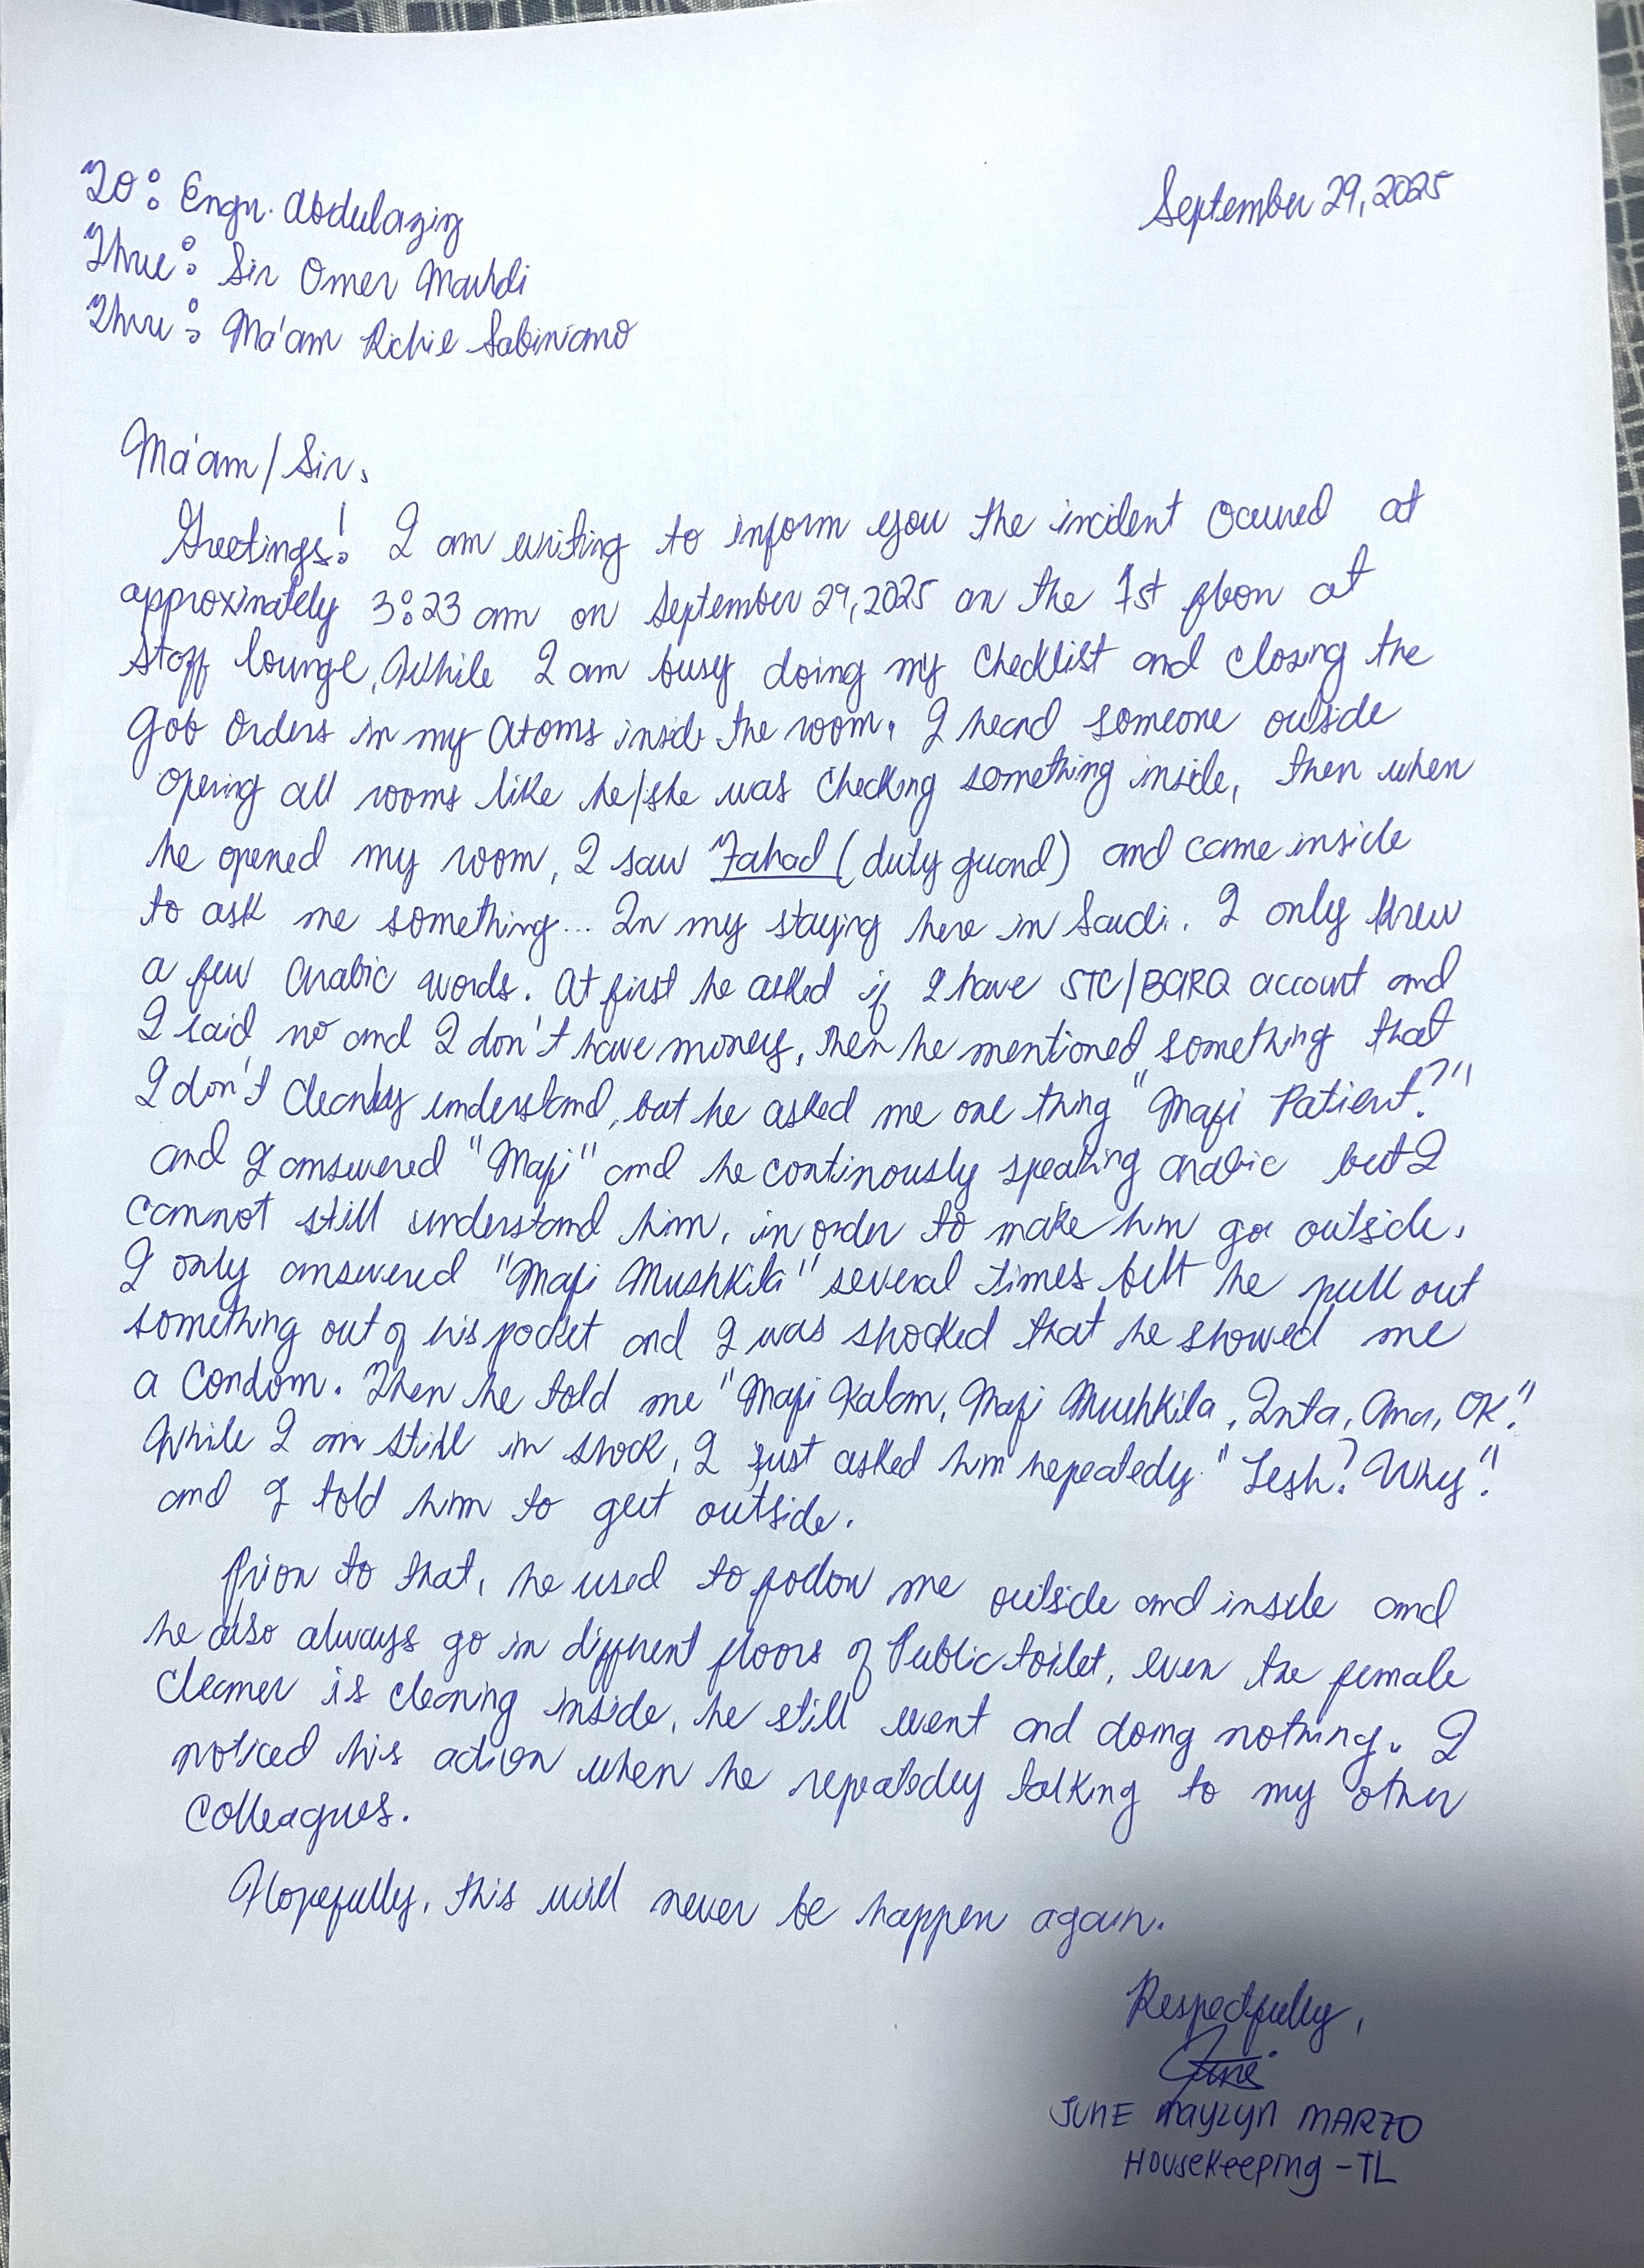 To: Engr. Abdulaziz
September 29, 2025
Thru: Sir Omer Mahdi
Thru: Ma'am Richie Sabiniano
Ma'am/Sir,
Greetings! I am writing to inform you the incident Occured at
approximately 3:23 am on September 29, 2025 on the 1st floor at
staff lounge, While I am busy doing my Checklist and closing the
Job Orders in my Atoms inside the room. I heard someone outside
opening all rooms like he/she was checking something inside, then when
he opened my room, I saw Fahad (duty guard) and came inside
to ask me something... In my staying here in Saudi. I only knew
a few Arabic words. At first he asked if I have STC/BARQ account and
I said no and I don't have money, then he mentioned something that
I don't clearly understand, but he asked me one thing "Mafi Patient?"
and I answered "Mafi" and he continously speaking arabic but I
cannot still understand him, in order to make him go outside.
I only answered "Mafi Mushkila" several times but he pull out
something out of his pocket and I was shocked that he showed me
a Condom. Then he told me "Mafi Kalam, Mafi Mushkila, Inta, Ana, OK!"
While I am still in shock, I just asked him repeatedly "Lesh? Why"!
and I told him to get outside.
Prior to that, he used to follow me outside and inside and
he also always go in different floors of Public toilet, even the female
cleaner is cleaning inside, he still went and doing nothing. I
noticed his action when he repeatedly talking to my other
Colleagues.
Hopefully, this will never be happen again.
Respectfully,
June
JUNE MAYLYN MARZO
Housekeeping - TL